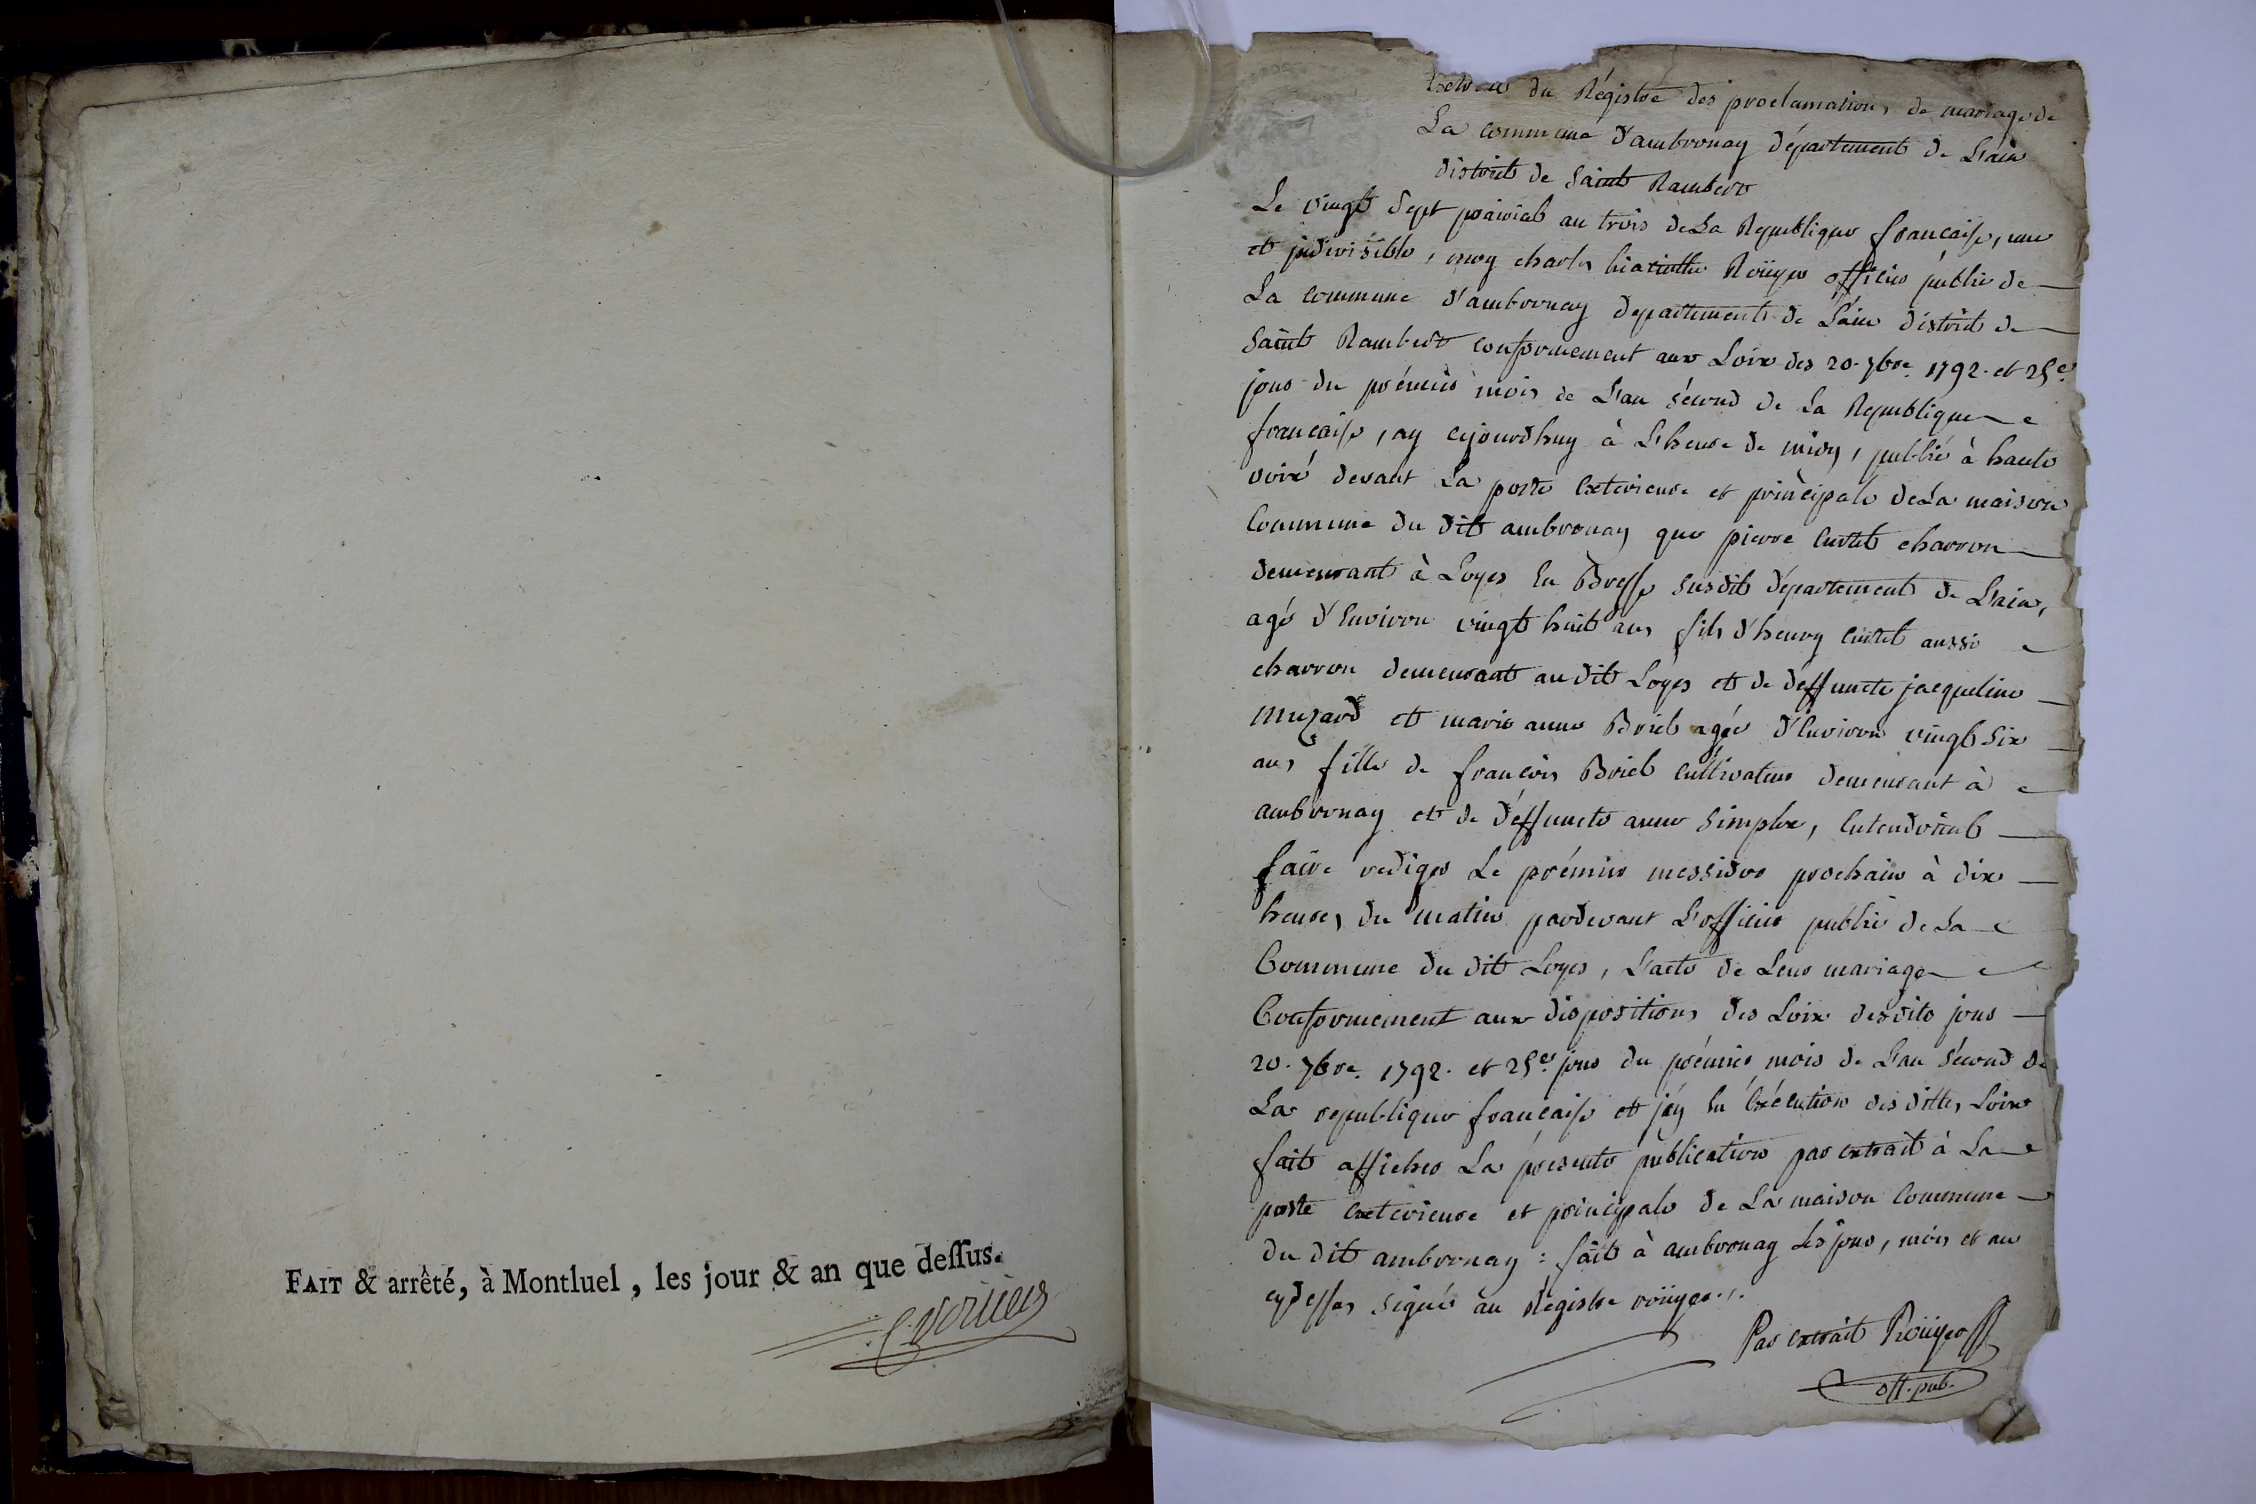 FAIT & arrêté, à Montluel, les jour & an que deſſus.
du Régistre des proclamations de mariage de
La commune d'ambronay département de L'ain
district de Saint Rambert
Le vingt Sept prairial an trois de La Republique francaise, une
et indivisible, moy charles hiacinthe Roüyer officier public de
La Commune d'ambronay departement de L'ain district de
Saint Rambert conformement aux Loix des 20. 7bre. 1792. et 25e.
jour du prémier mois de L'an sécond de La Republique
francaise, ay cejourdhuy à L'heure de midy, publié à haute
voix devant La porte Exterieure et principale de La maison
Commune du dit ambronay que pierre Curtet charron
demeurant à Loyes En Bresse susdit département de L'ain,
agé d'Environ vingt huit ans fils d'henry Curtet aussi
charron demeurant au dit Loyes et de deffuncte jacqueline
Muzard et marie anne Briel agée d'Environ vingt Six
ans fille de francois Briel Cultivateur demeurant à
ambronay et de deffuncte anne Simplex, Entendoient
faire rediger Le prémier messidor prochain à dix
heures du matin pardevant L'officier public de La
Commune du dit Loyes, L'acte de Leur mariage
Conformement aux dispositions des Loix desdits jour
20. 7bre. 1792. et 25e. jour du prémier mois de L'an sécond de
La republique francaise et j'ay En Exécution des dittes Loix
fait afficher La présente publication par extrait à La
porte Exterieure et principale de La maison Commune
du dit ambronay : fait à ambronay Les jour, mois et an
cydessus Signé au Régistre roüyer.
Par extrait Roüyer
off. pub.